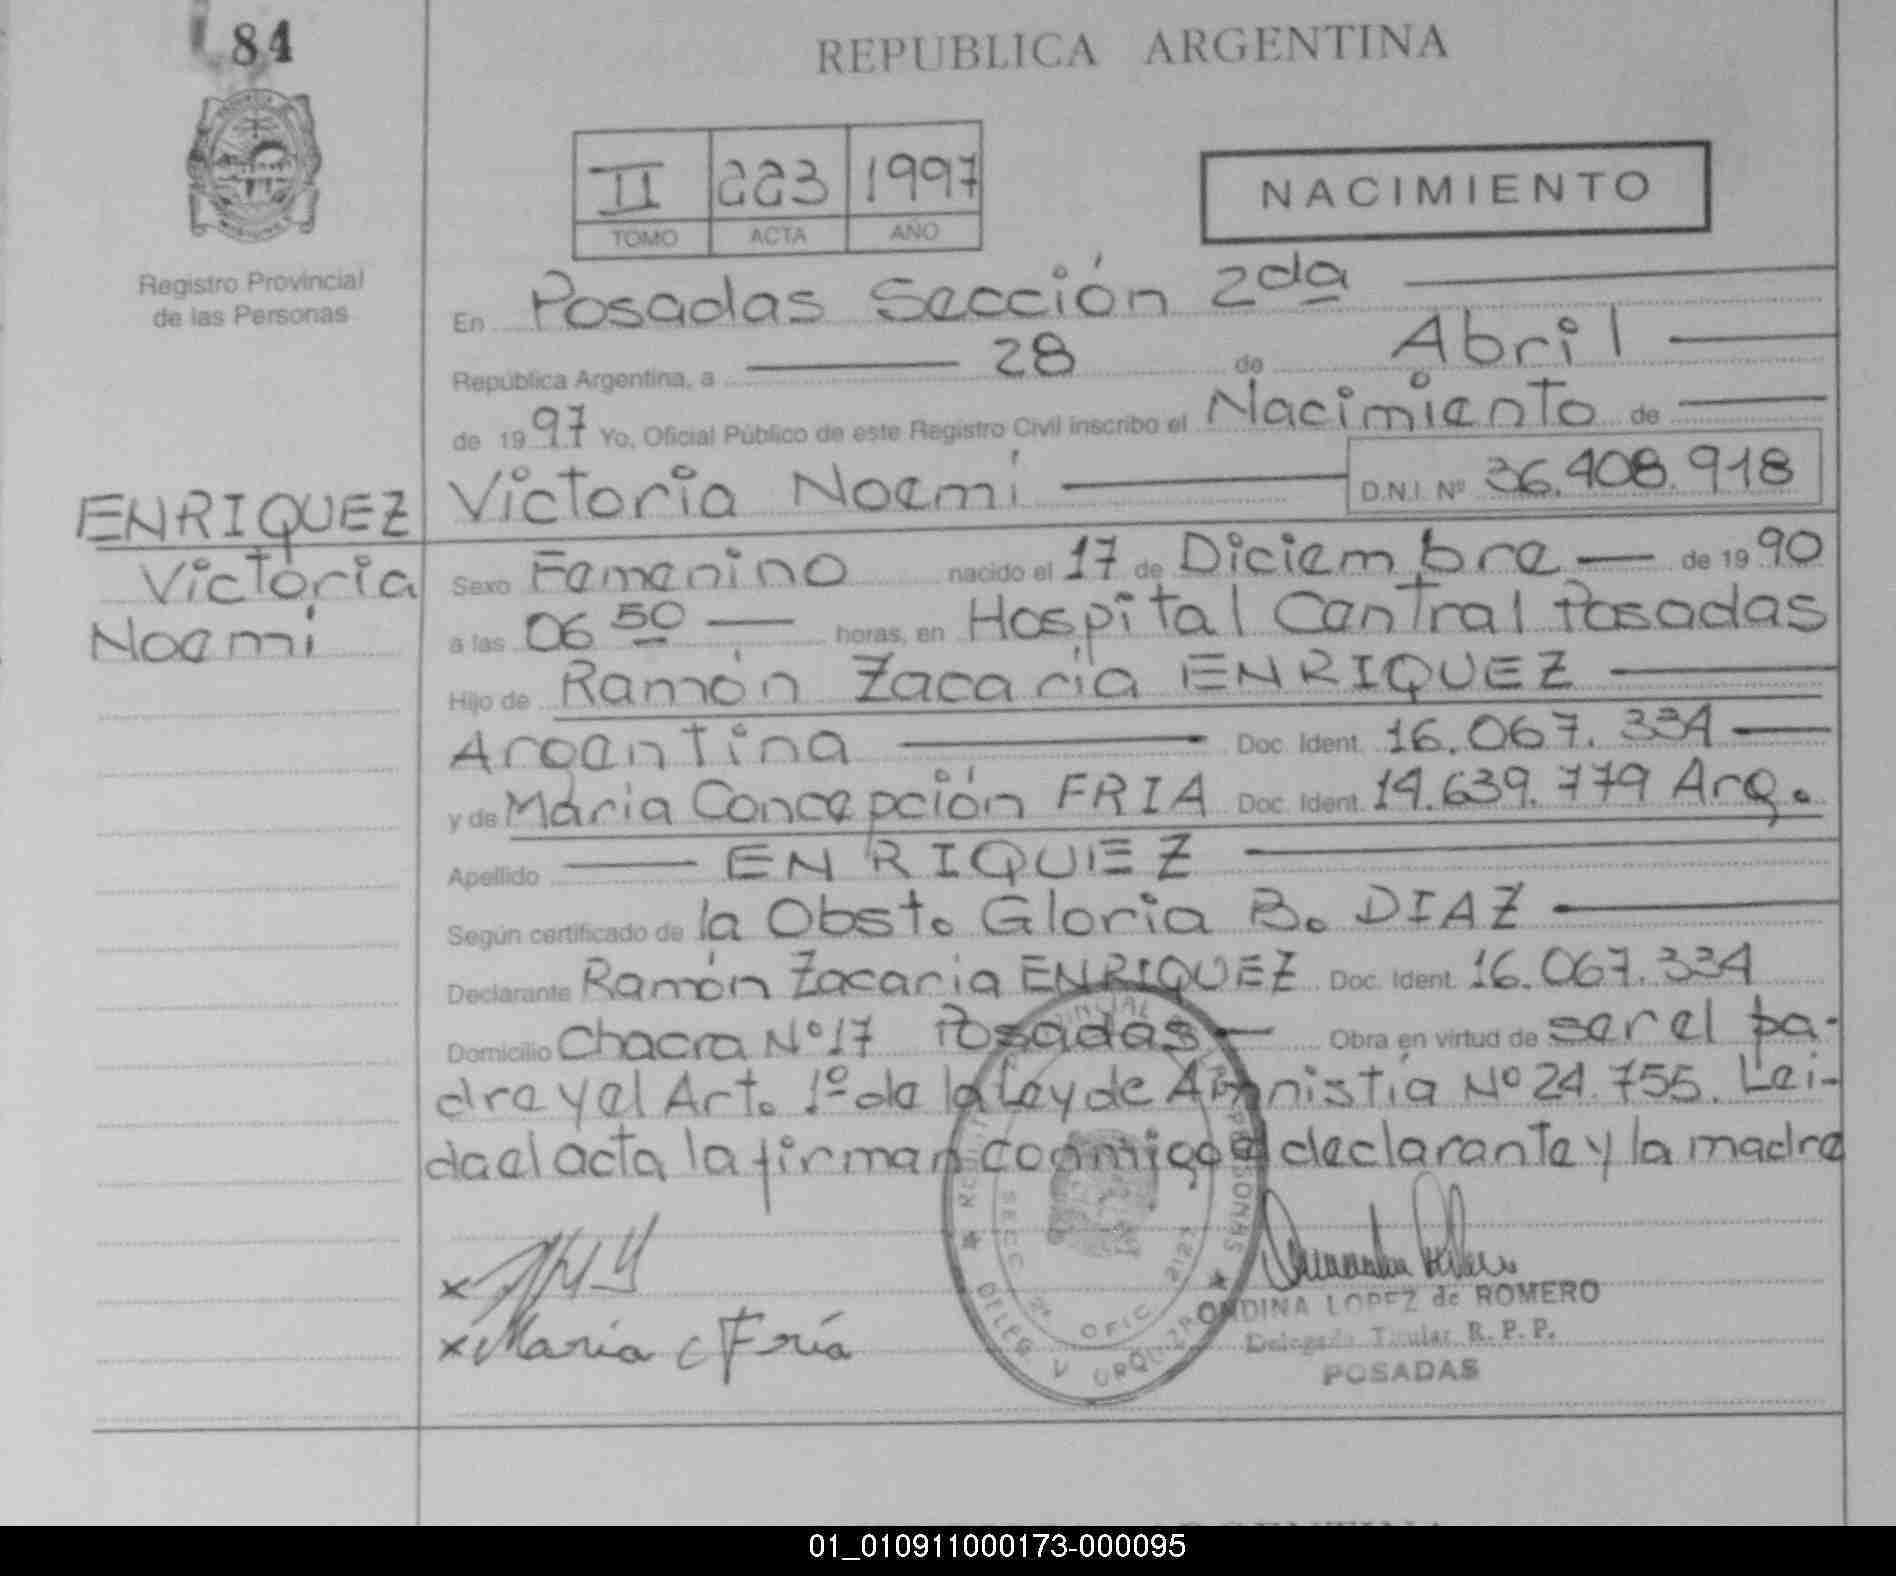 84
REPUBLICA ARGENTINA
II 223 1997
TOMO ACTA AÑO
NACIMIENTO
Registro Provincial
de las Personas
En Posadas Sección 2da
República Argentina, a 28 de Abril
de 1997 Yo, Oficial Público de este Registro Civil inscribo el Nacimiento de
Victoria Noemí D.N.I. Nº 36.408.918
ENRIQUEZ
Victoria
Noemí
Sexo Femenino nacido el 17 de Diciembre de 1990
a las 06 50 horas, en Hospital Central Posadas
Hijo de Ramón Zacaria ENRIQUEZ
Argentina Doc. Ident. 16.067.334
y de María Concepción FRIA Doc. Ident. 14.639.779 Arg.
Apellido ENRIQUEZ
Según certificado de la Obst. Gloria B. DIAZ
Declarante Ramón Zacaria ENRIQUEZ Doc. Ident. 16.067.334
Domicilio Chacra Nº 17 Posadas Obra en virtud de ser el pa-
dre y el Art. 1º de la Ley de Amnistía Nº 24.755. Leí-
da el acta la firman conmigo el declarante y la madre
x
x María C Fría
SECC 2ª OFIC 2127
DELEG V URQUIZA
ONDINA LOPEZ de ROMERO
Delegada Titular R. P. P.
POSADAS
01_010911000173-000095